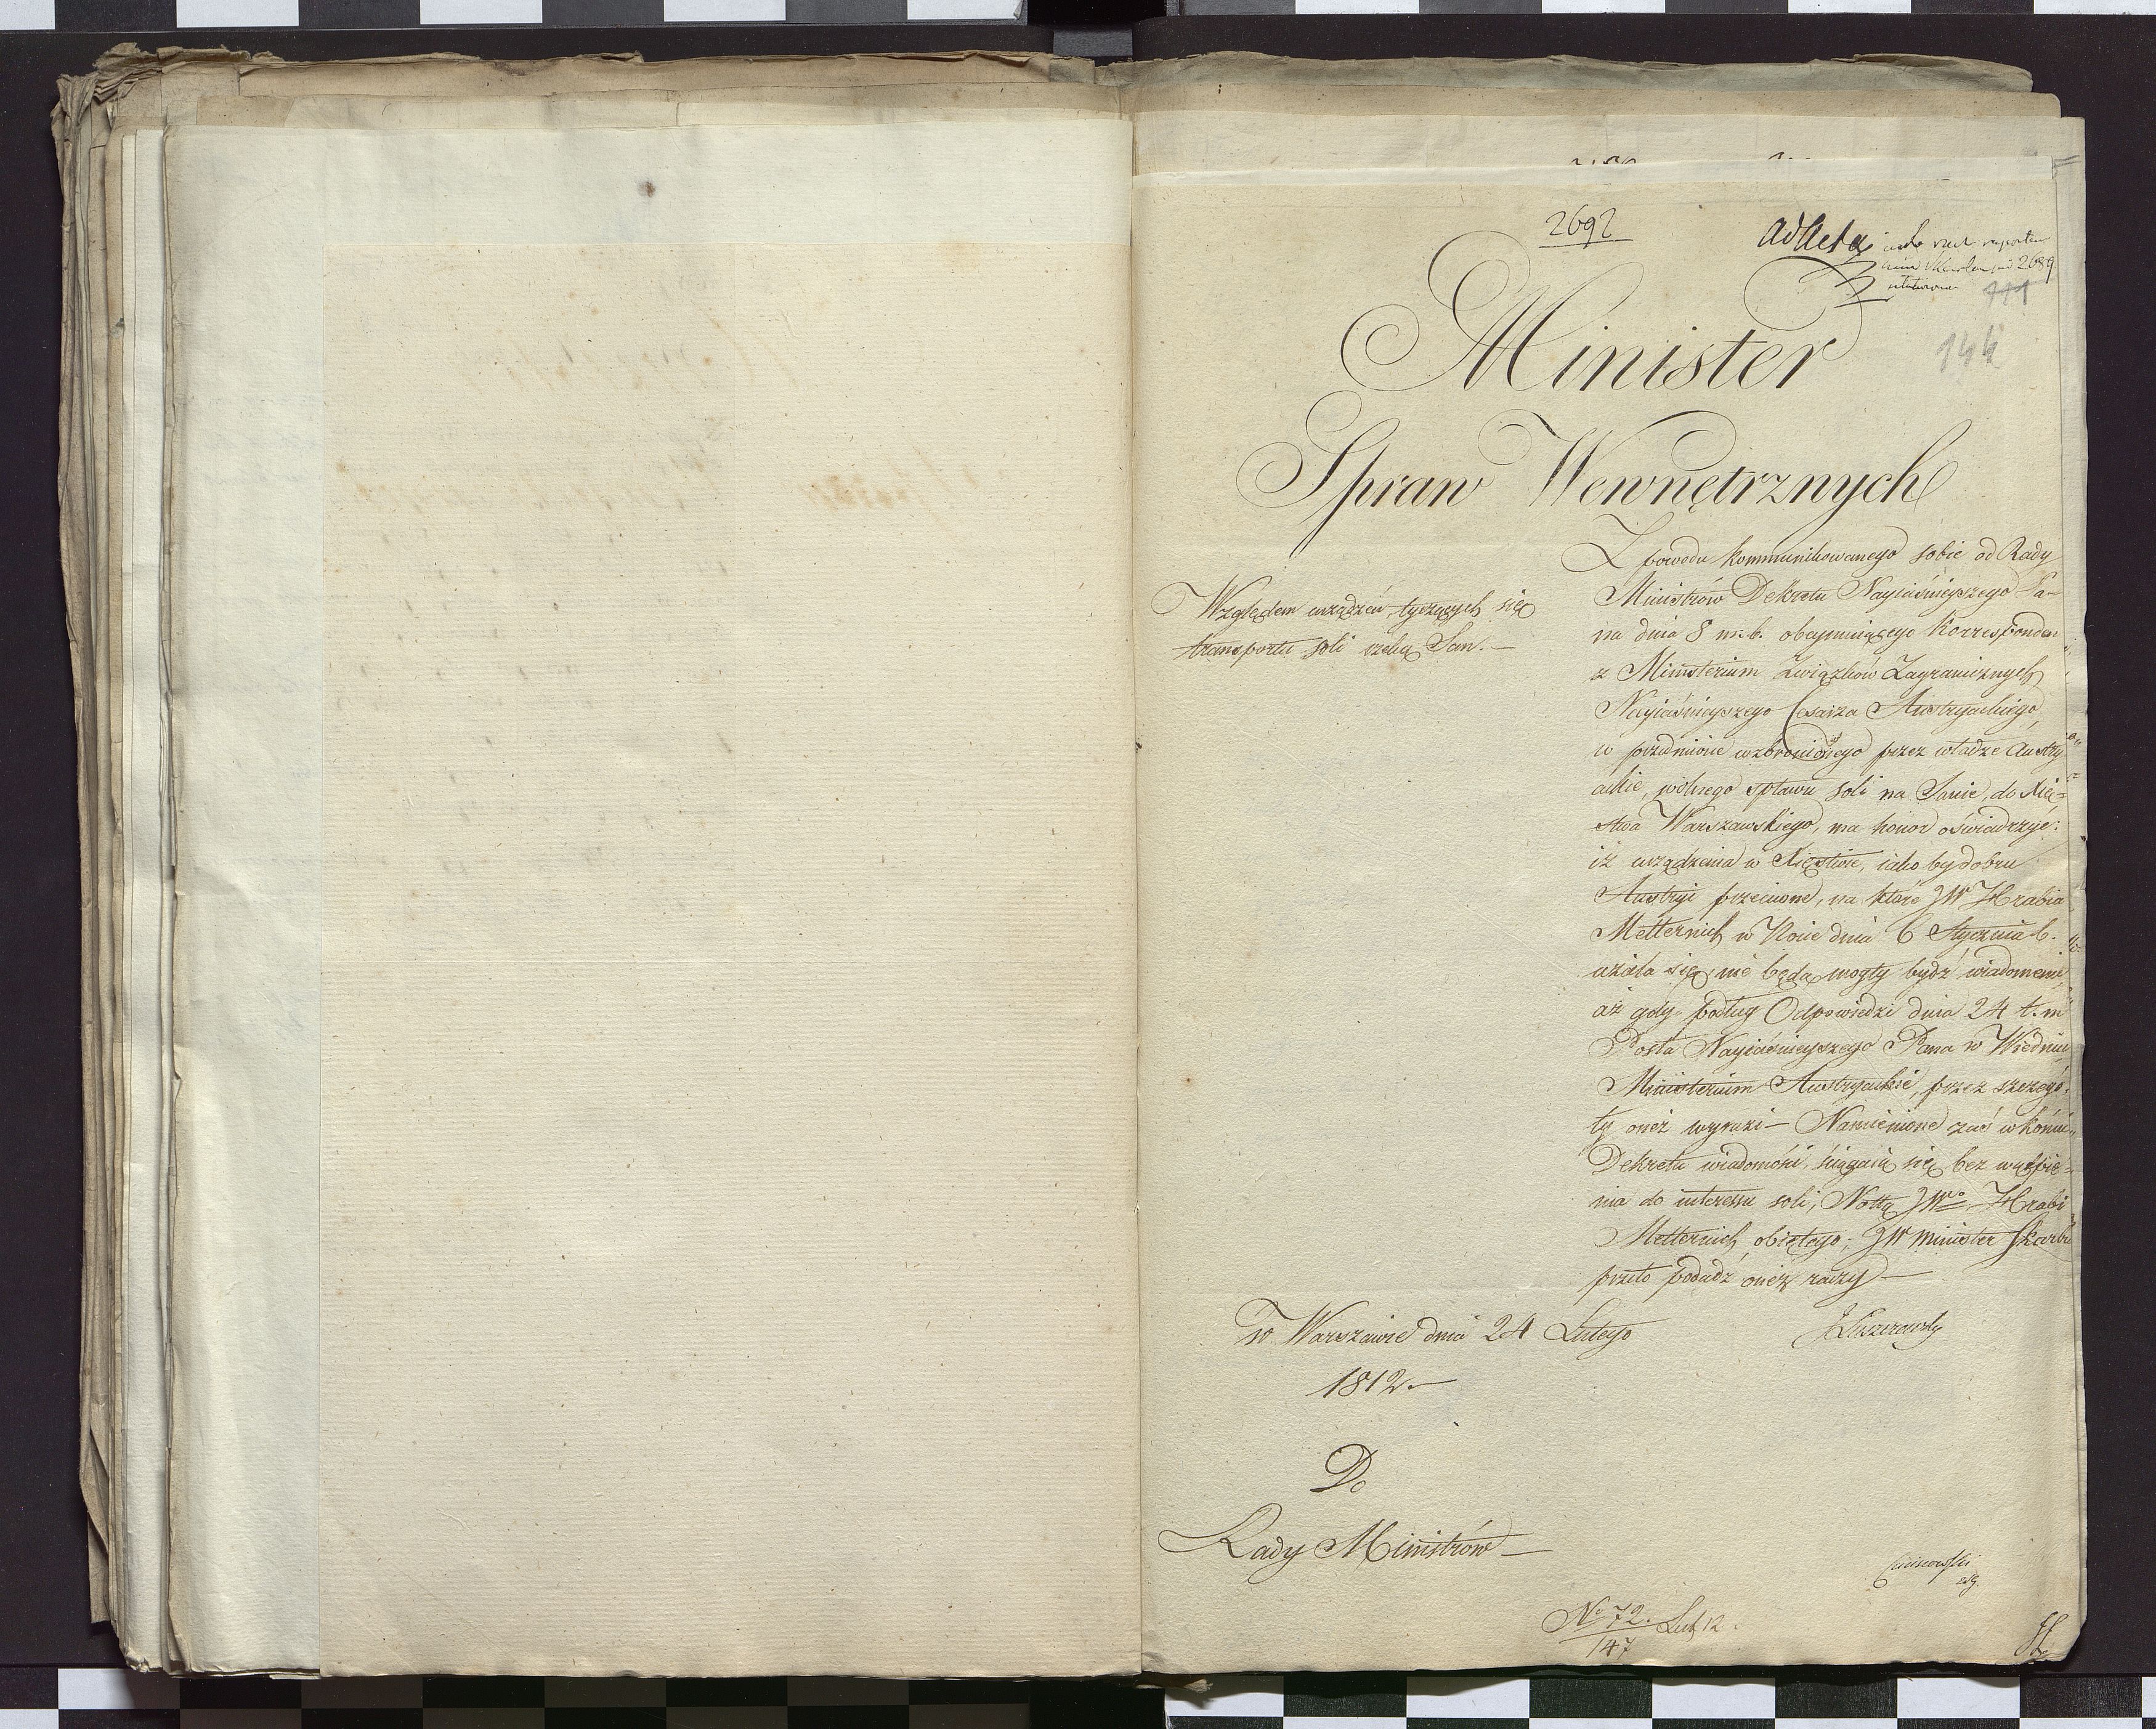 2692
ad Acta
2689
111
144
Minister
Spraw Wewnętrznych
Względem urządzeń, tyczących się
transportu soli rzeką San.—
Z powodu kommunikowanego sobie od Rady
Ministrów Dekretu Nayiaśnieyszego Pa-
na dnia 8 m. b. obeymuiącego Korresponden
z Ministerium Związków Zagranicznych
Nayiaśnieyszego Cesarza Austryackiego,
w przedmiocie wzbronionego przez władze Austry
ackie, wolnego spławu soli na Sanie, do Xię=
stwa Warszawskiego, ma honor oświadczyć:
iż urządzenia w Xięstwie, iako by dobru
Austryi przeciwne, na które JW Hrabia
Metternich w Nocie dnia 6 Stycznia b.
użala się, nie będą mogły bydź wiadomemi,
aż gdy podług Odpowiedzi dnia 24 t. m
Posła Nayiaśnieyszego Pana w Wiedniu
Ministerium Austryackie, przez szczegó-
ły oneż wyrazi— Namienione zaś w końcu
Dekretu wiadomości, ściągaią się bez wątpie-
nia do interessu soli, Nottą JWo Hrabi
Metternich obiętego; JW Minister Skarbu
przeto podadź oneż raczy—
w Warszawie dnia 24 Lutego
1812.—
J Łuszczewsky
Do
Rady Ministrów—
No 72. Lut 12.
147